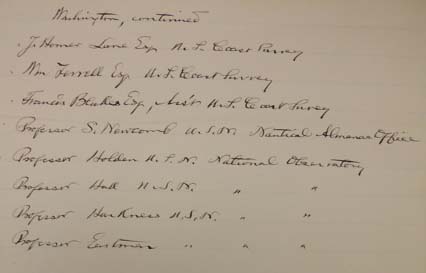 Washington, continued
J. Homer Lane Esq U. S. Coast Survey
Wm Ferrell Esq. U. S. Coast Survey
Francis Blake Esq, Ass't U. S. Coast Survey
Professor S. Newcomb U. S. N. Nautical Almanac Office
Professor Holden U. S. N. National Observatory
Professor Hall U. S. N. " "
Professor Harkness U. S. N. " "
Professor Eastman " " "